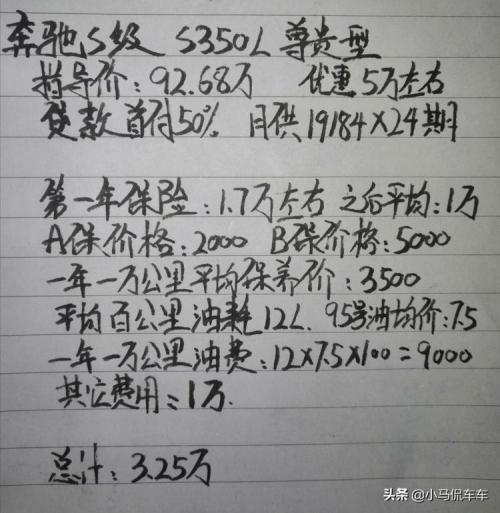 奔驰S级 S350L 尊贵型
指导价:92.68万 优惠5万左右
贷款首付50% 月供19184×24期
第一年保险:1.7万左右 之后平均:1万
A保价格:2000 B保价格:5000
一年一万公里平均保养价:3500
平均百公里油耗12L. 95号油均价:7.5
一年一万公里油费:12×7.5×100=9000
其它费用=1万.
总计:3.25万
头条 @小马侃车车